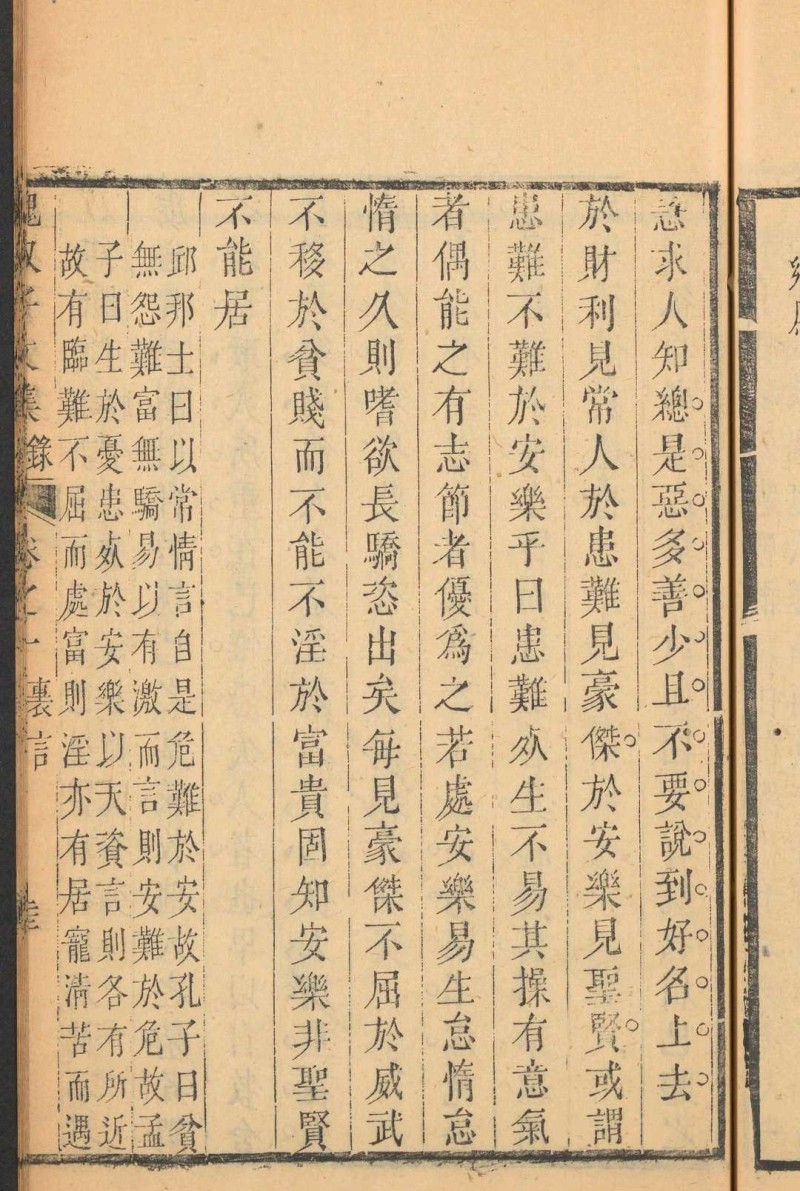 急求人知總是惡多善少且不要說到好名上去
於財利見常人於患難見豪傑於安樂見聖賢或謂
患難不難於安樂乎曰患難𣦸生不易其操有意氣
者偶能之有志節者優爲之若處安樂易生怠惰怠
惰之久則嗜欲長驕恣出矣每見豪傑不屈於威武
不移於貧賤而不能不淫於富貴固知安樂非聖賢
不能居
邱邦士曰以常情言自是危難於安故孔子曰貧
無怨難富無驕易以有激而言則安難於危故孟
子曰生於憂患𣦸於安樂以天資言則各有所近
故有臨難不屈而處富則淫亦有居寵淸苦而遇
魏叔子文集 錄 卷之一 裏言